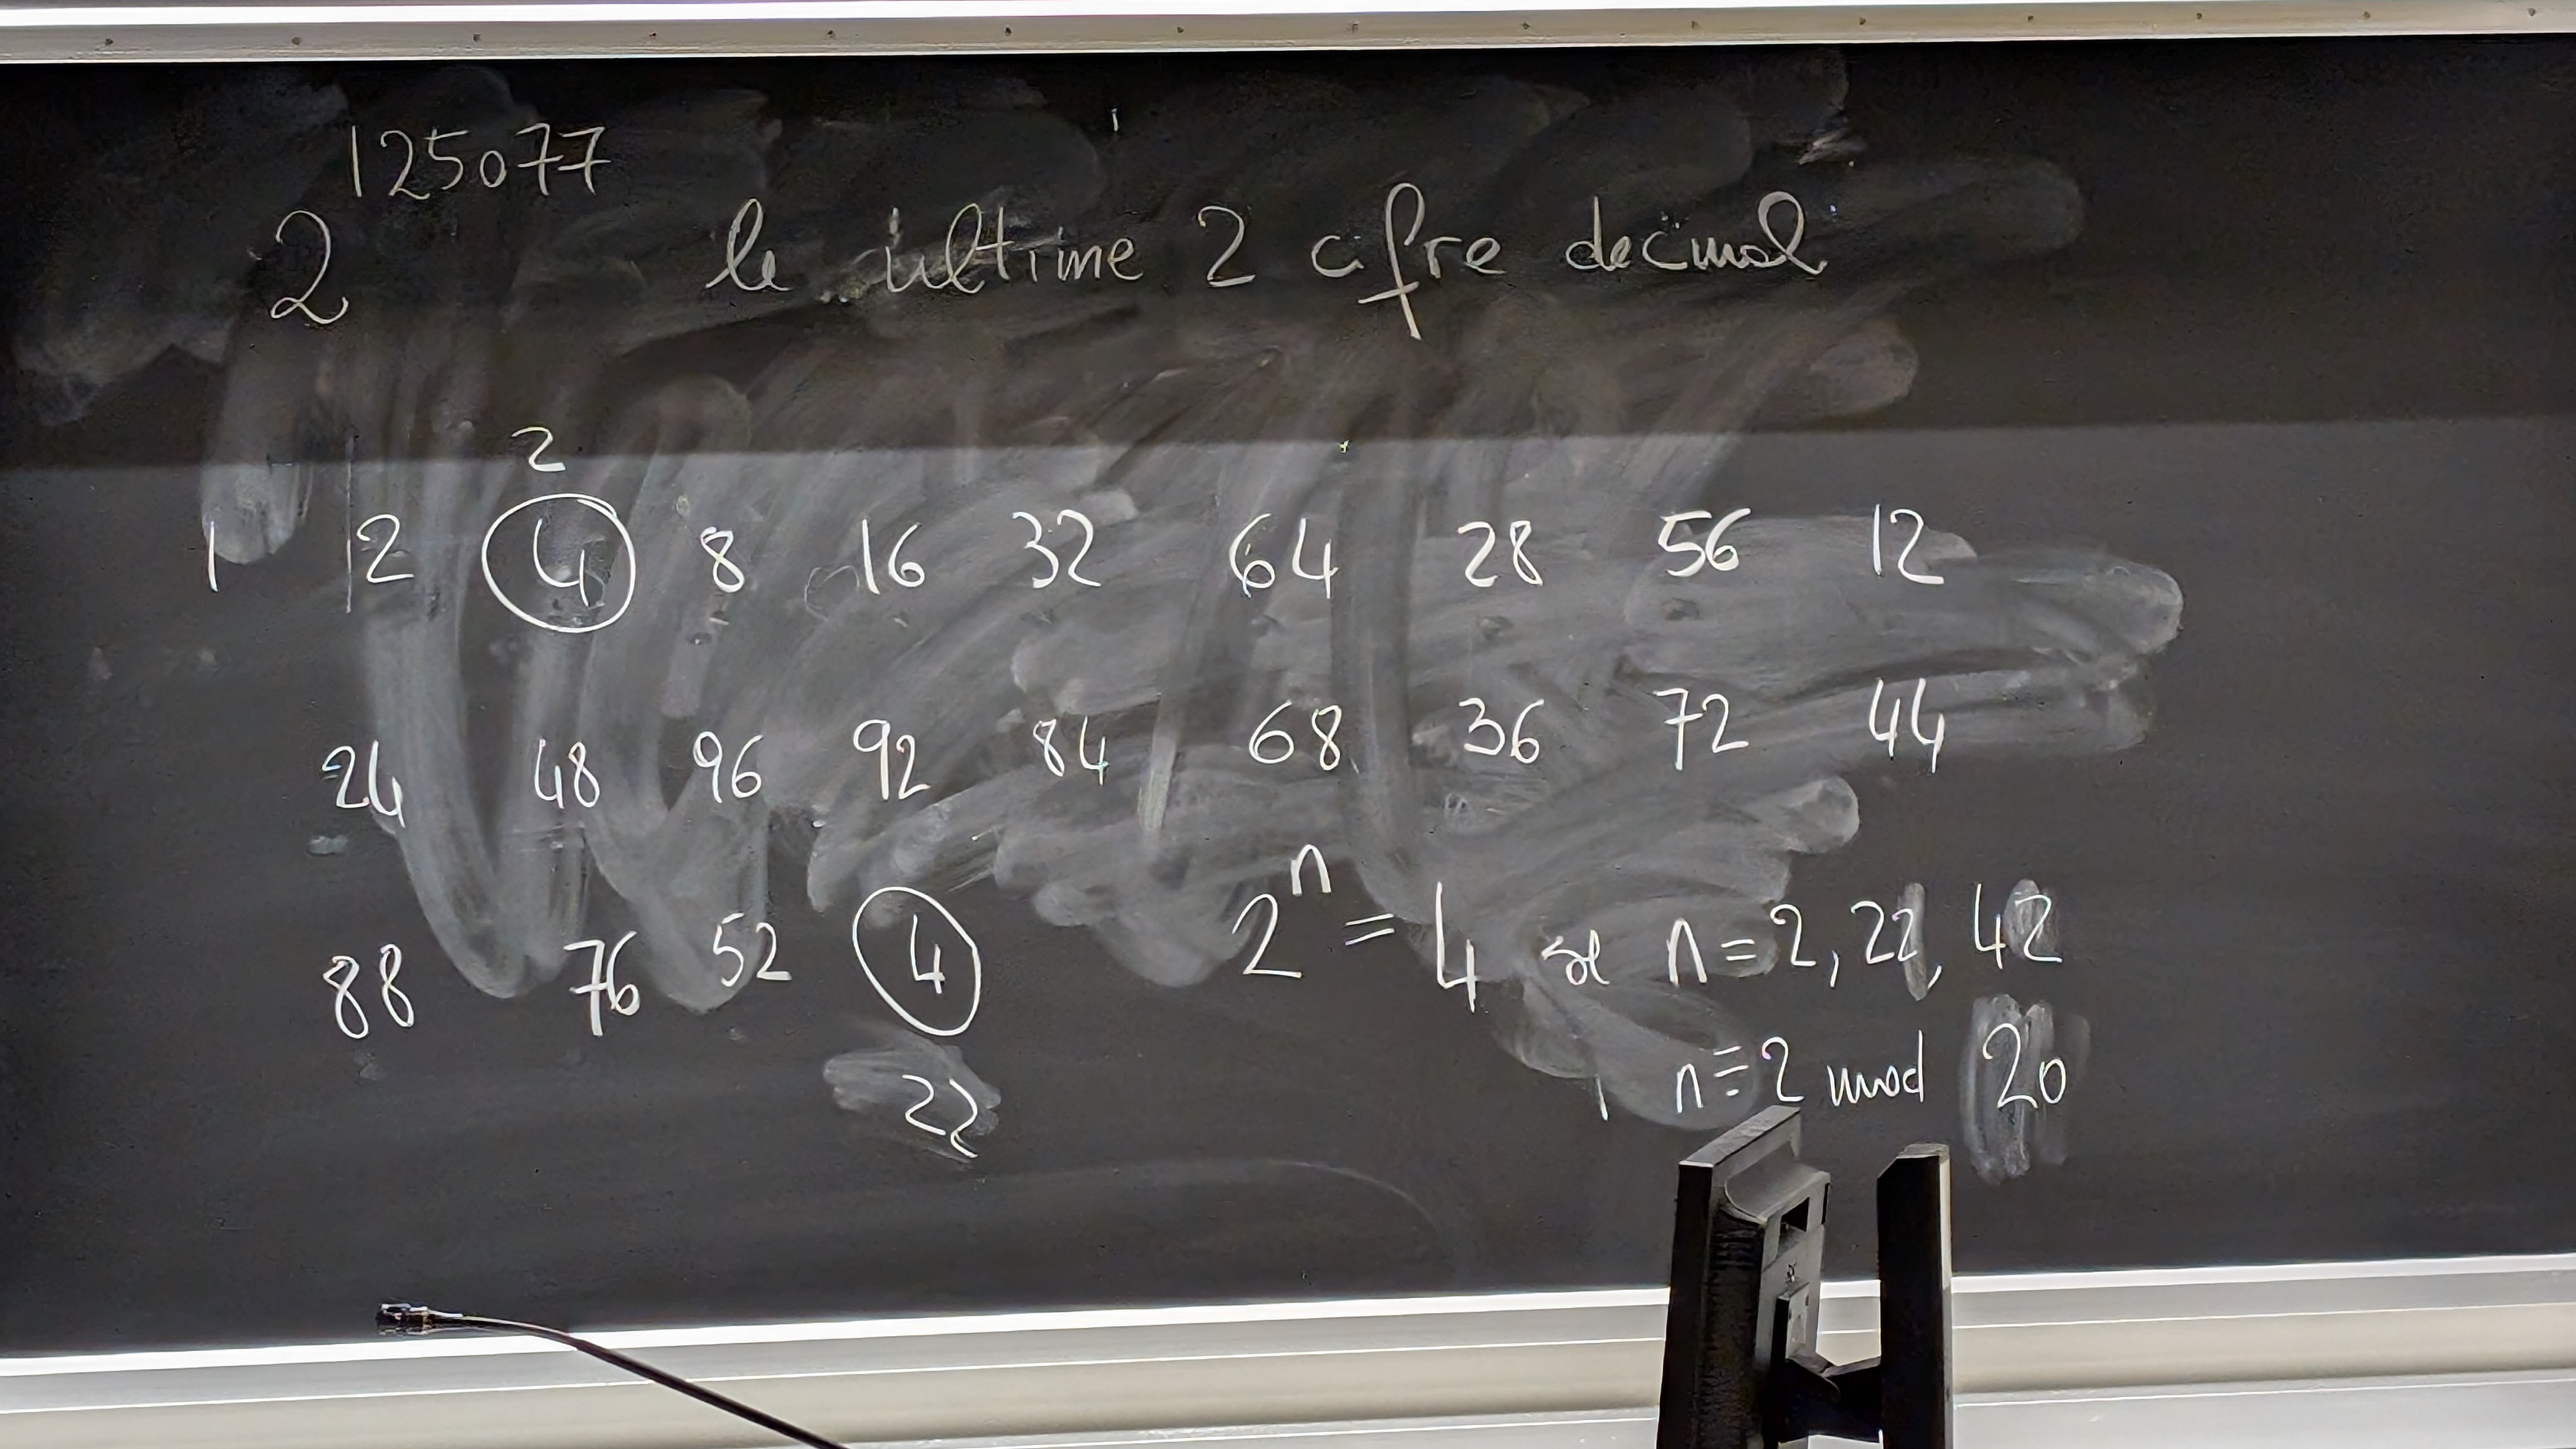 2^125077 le ultime 2 cifre decimal
2
1 | 2 4 8 16 32 64 28 56 12
24 48 96 92 84 68 36 72 44
88 76 52 4 2^n = 4 se n = 2, 22, 42
22 n ≡ 2 mod 20